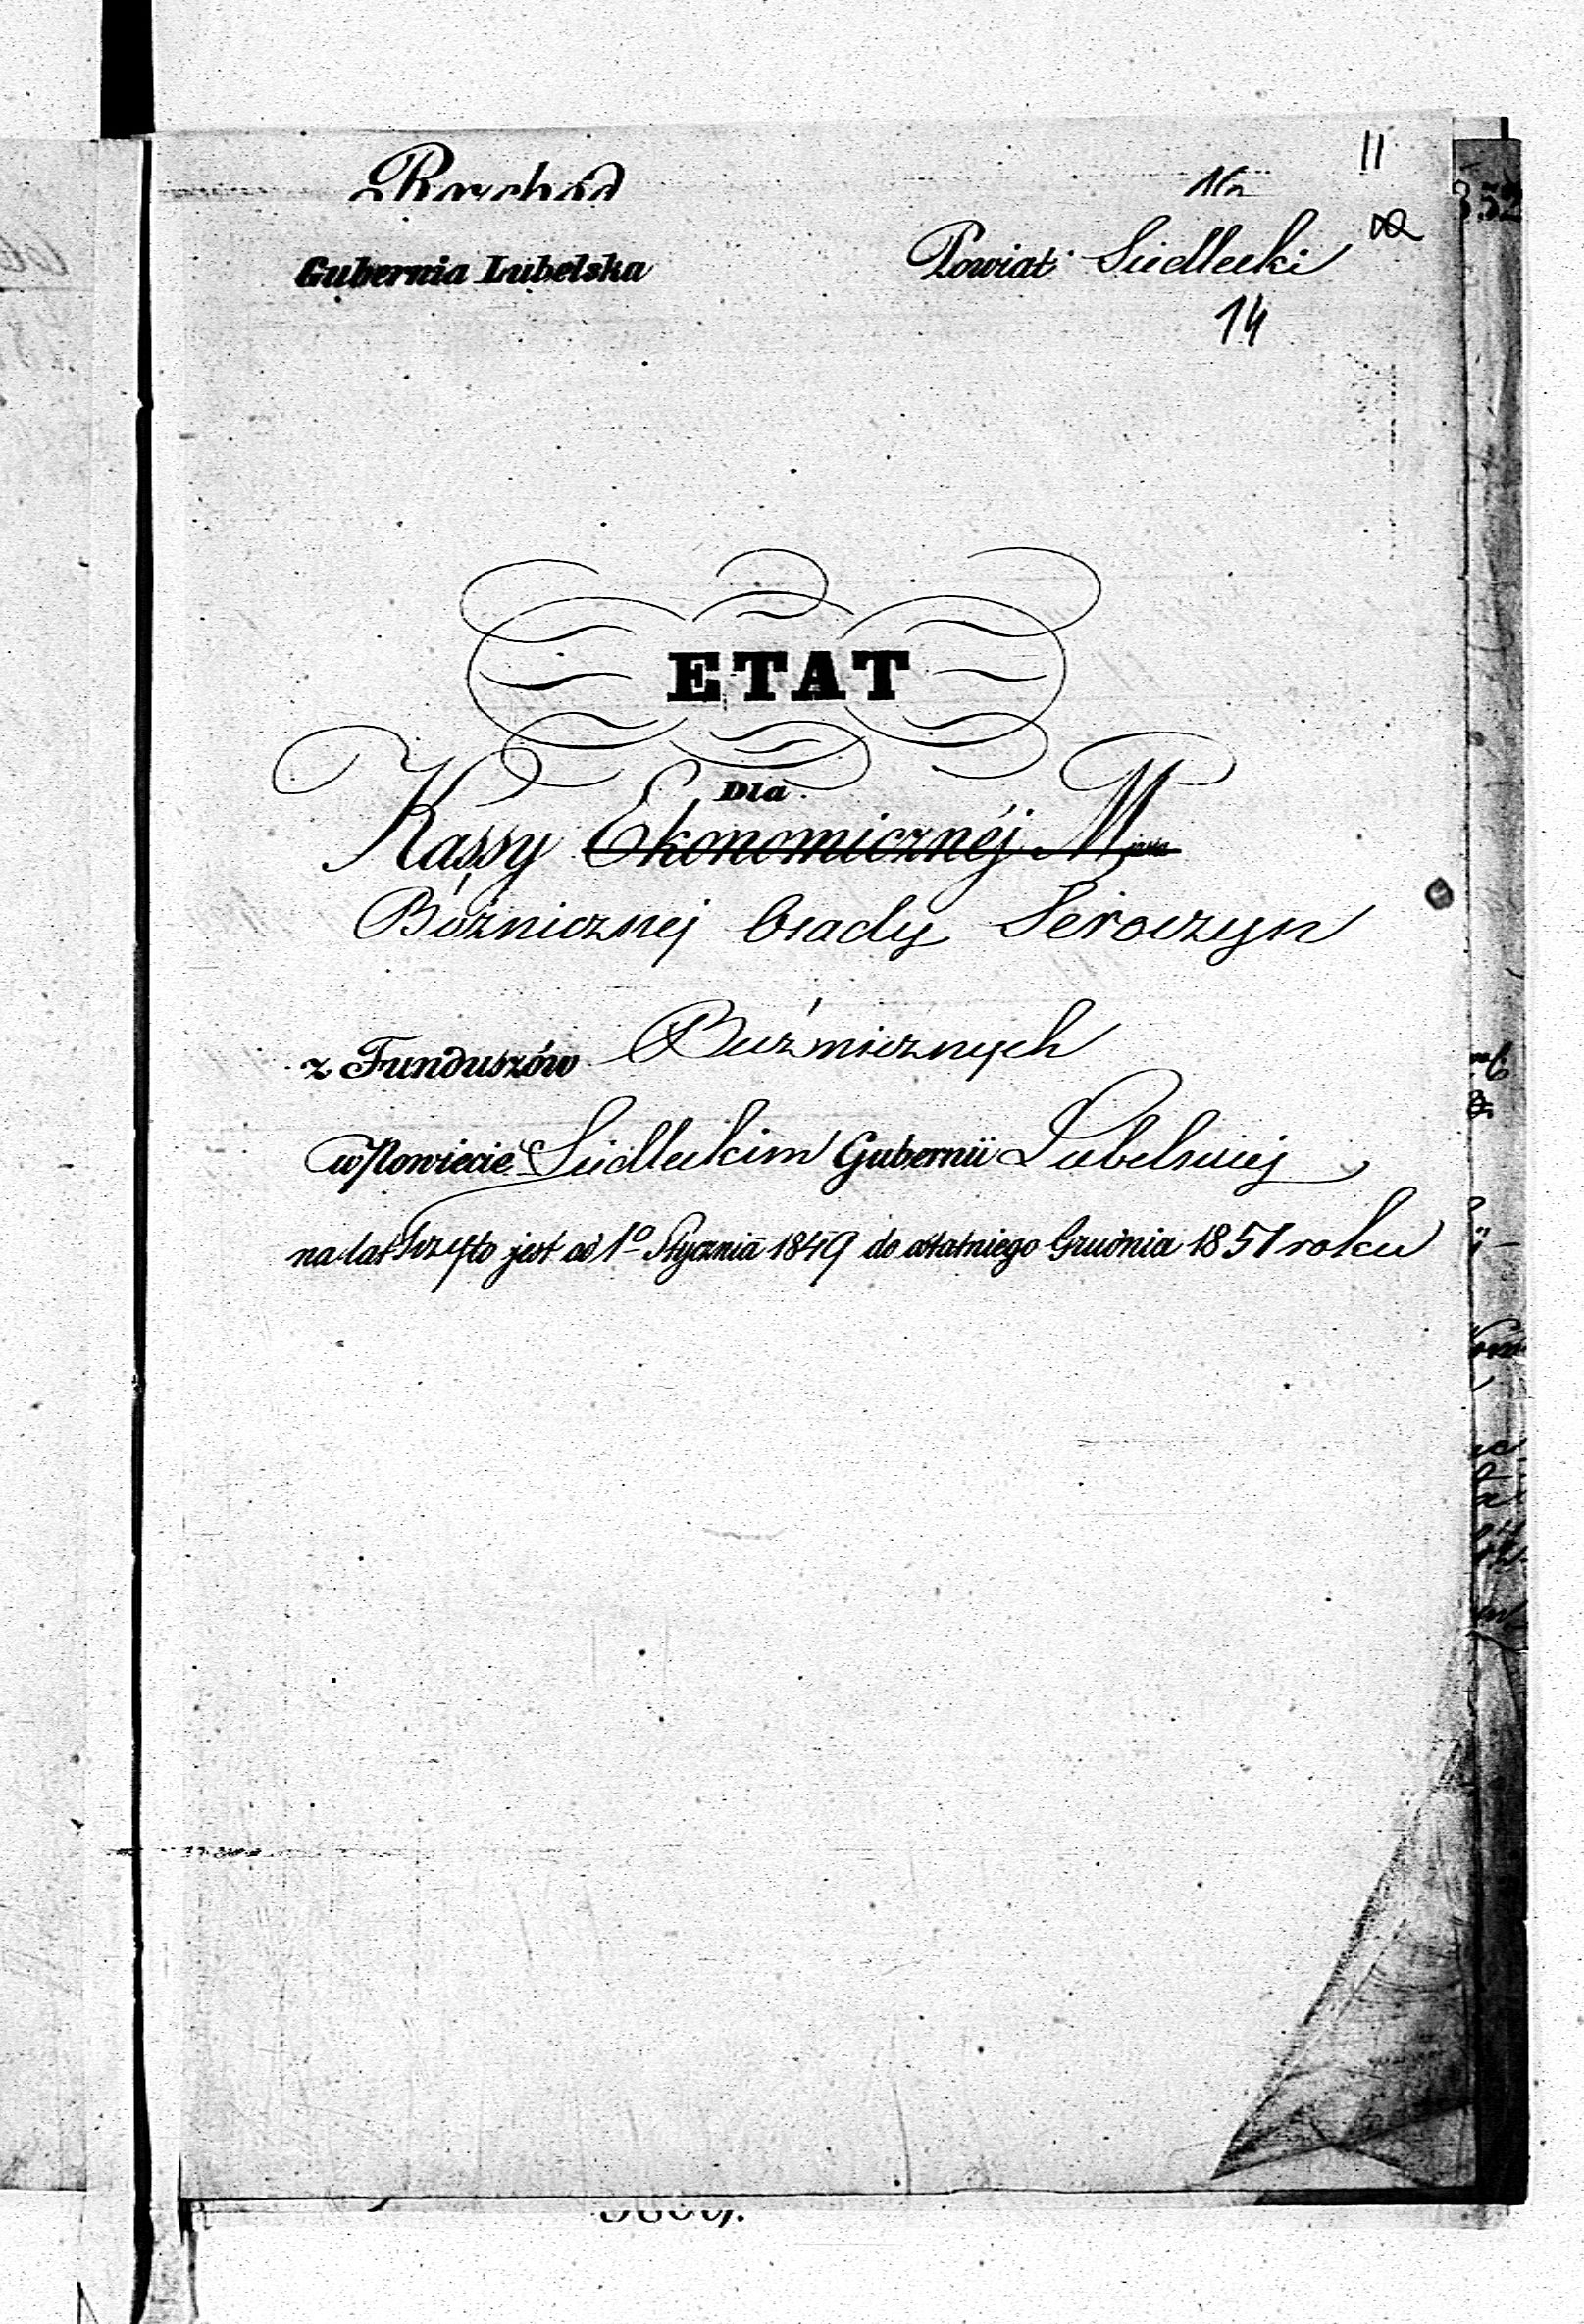 Rozchód
11
Gubernia Lubelska
Powiat Siedlecki
14
ETAT
Dla
Kassy Ekonomicznéj Miasta
Bóżnicznej Osady Seroczyn
z Funduszów Bużnicznych
w Powiecie Siedleckim Gubernii Lubelskiej
na lat trzy to jest od 1o Stycznia 1849 do ostatniego Grudnia 1851 roku
352